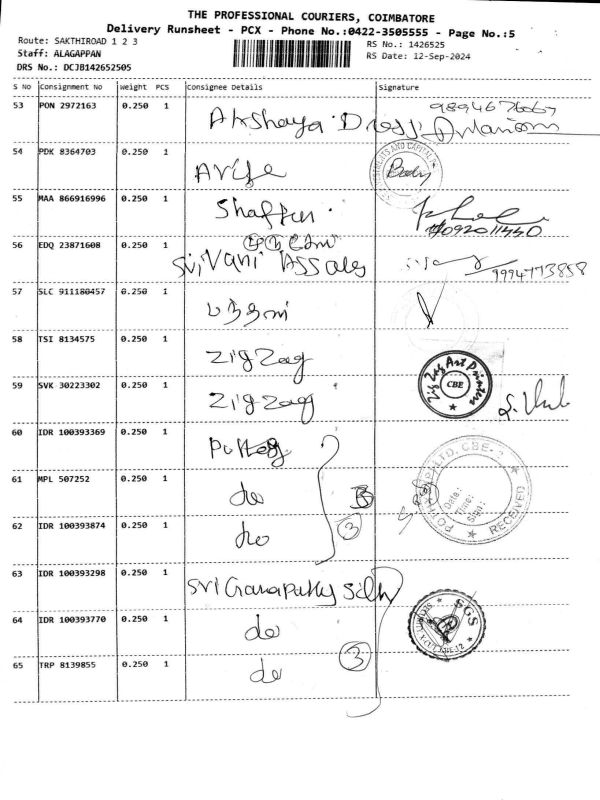 THE PROFESSIONAL COURIERS, COIMBATORE
Delivery Runsheet - PCX - Phone No.:0422-3505555 - Page No.:5
Route: SAKTHIROAD 1 2 3
RS No.: 1426525
Staff: ALAGAPPAN
RS Date: 12-Sep-2024
DRS No.: DCJB142652505
S No Consignment No Weight PCS Consignee Details Signature
53 PON 2972163 0.250 1 Akshaya Dress
54 PDK 8364703 0.250 1 Body
55 MAA 866916996 0.250 1
56 EDQ 23871608 0.250 1 Sri Vani 9994773858
57 SLC 911180457 0.250 1
58 TSI 8134575 0.250 1 Zig Zag
Zig Zag Art Printers
CBE
59 SVK 30223302 0.250 1 Zig Zag
60 IDR 100393369 0.250 1
61 MPL 507252 0.250 1 do
62 IDR 100393874 0.250 1 do 3
Date:
Time:
Sign:
RECEIVED
63 IDR 100393298 0.250 1 Sri Ganapathy Silk
64 IDR 100393770 0.250 1 do
SGS
65 TRP 8139855 0.250 1 do 3